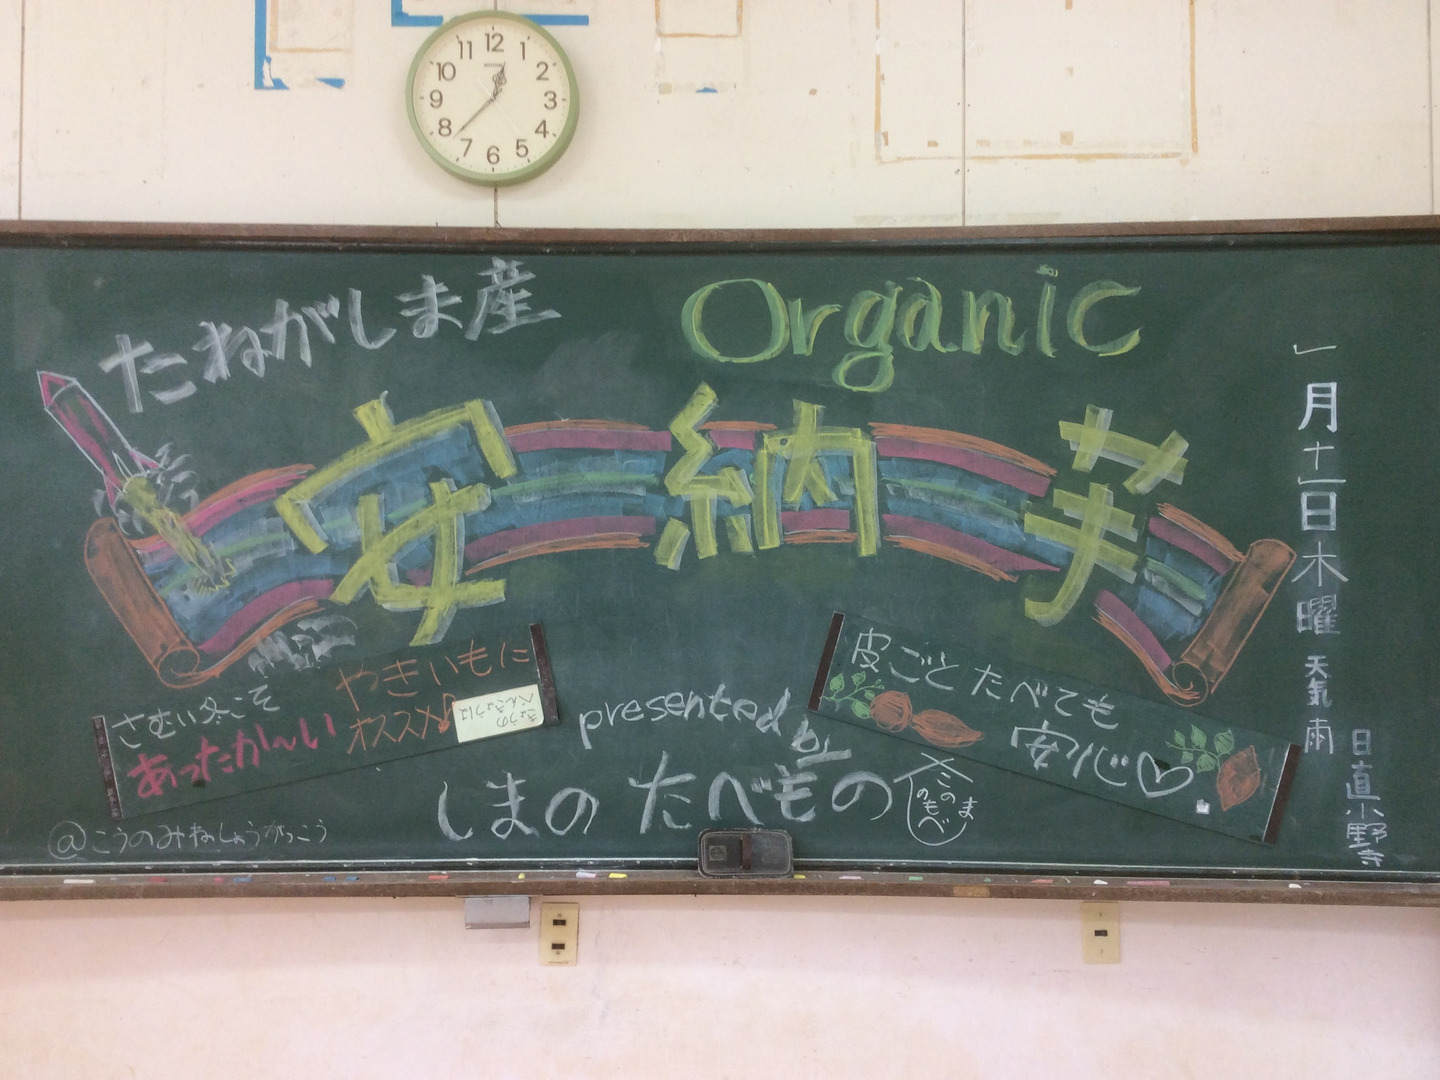 12
1
2
3
4
5
6
7
8
9
10
11
たねがしま産
Organic
安納芋
さむい冬こそ
あったかーい
やきいもに
オススメ
きょうの
べんきょうは
presented by
しまの たべもの
しまの
たべもの
皮ごとたべても
安心♡
@こうのみねしょうがっこう
一月十一日木曜 天気 雨
日直 小野寺